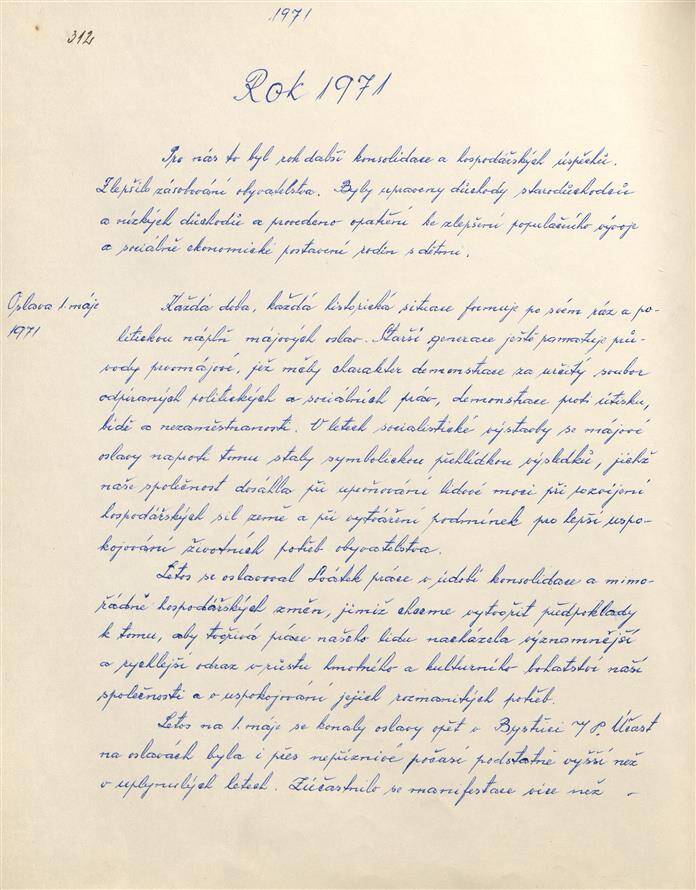 1971
312
Rok 1971
Pro nás to byl rok další konsolidace a hospodářských úspěchů.
Zlepšilo zásobování obyvatelstva. Byly upraveny důchody starodůchodců
a nízkých důchodů a provedeno opatření ke zlepšení populačního vývoje
a sociálně ekonomické postavení rodin s dětmi.
Oslava 1. máje
1971
Každá doba, každá historická situace formuje po svém ráz a po-
litickou náplň májových oslav. Starší generace ještě pamatuje prů-
vody prvomájové, jež měly charakter demonstrace za určitý soubor
odpíraných politických a sociálních práv, demonstrace proti útisku,
bídě a nezaměstnanosti. V letech socialistické výstavby se májové
oslavy naproti tomu staly symbolickou přehlídkou výsledků, jichž
naše společnost dosáhla při upevňování lidové moci při rozvíjení
hospodářských sil země a při vytváření podmínek pro lepší uspo-
kojování životních potřeb obyvatelstva.
Letos se oslavoval Svátek práce v údobí konsolidace a mimo-
řádně hospodářských změn, jimiž chceme vytvořit předpoklady
k tomu, aby tvořivá práce našeho lidu nacházela významnější
a rychlejší odraz v růstu hmotného a kulturního bohatství naší
společnosti a v uspokojování jejich rozmanitých potřeb.
Letos na 1. máje se konaly oslavy opět v Bystřici n/P. Účast
na oslavách byla i přes nepříznivé počasí podstatně vyšší než
v uplynulých letech. Zúčastnilo se manifestace více než -